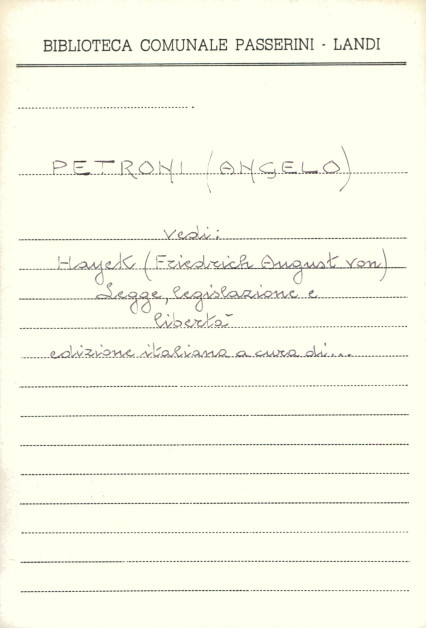 BIBLIOTECA COMUNALE PASSERINI - LANDI
PETRONI (ANGELO)
vedi:
Hayek (Friedrich August von)
Legge, legislazione e
libertà
edizione italiana a cura di...